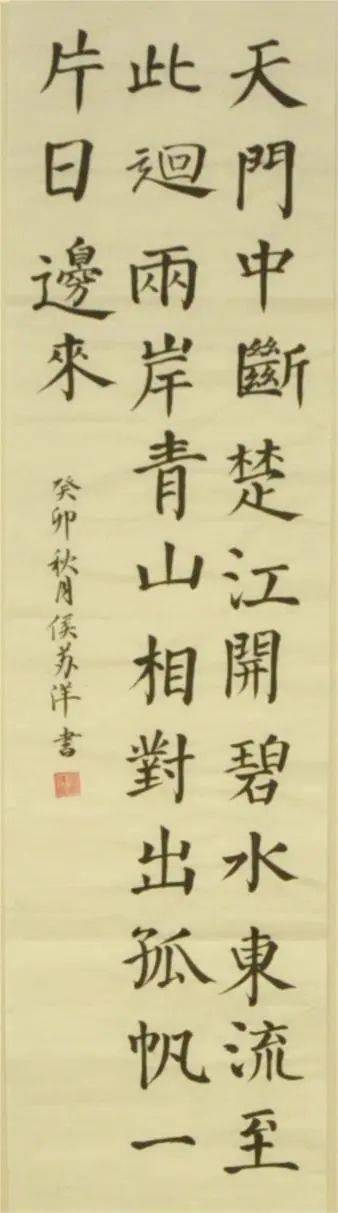 天門中斷楚江開碧水東流至
此迴兩岸青山相對出孤帆一
片日邊來
癸卯秋月侯苏洋書